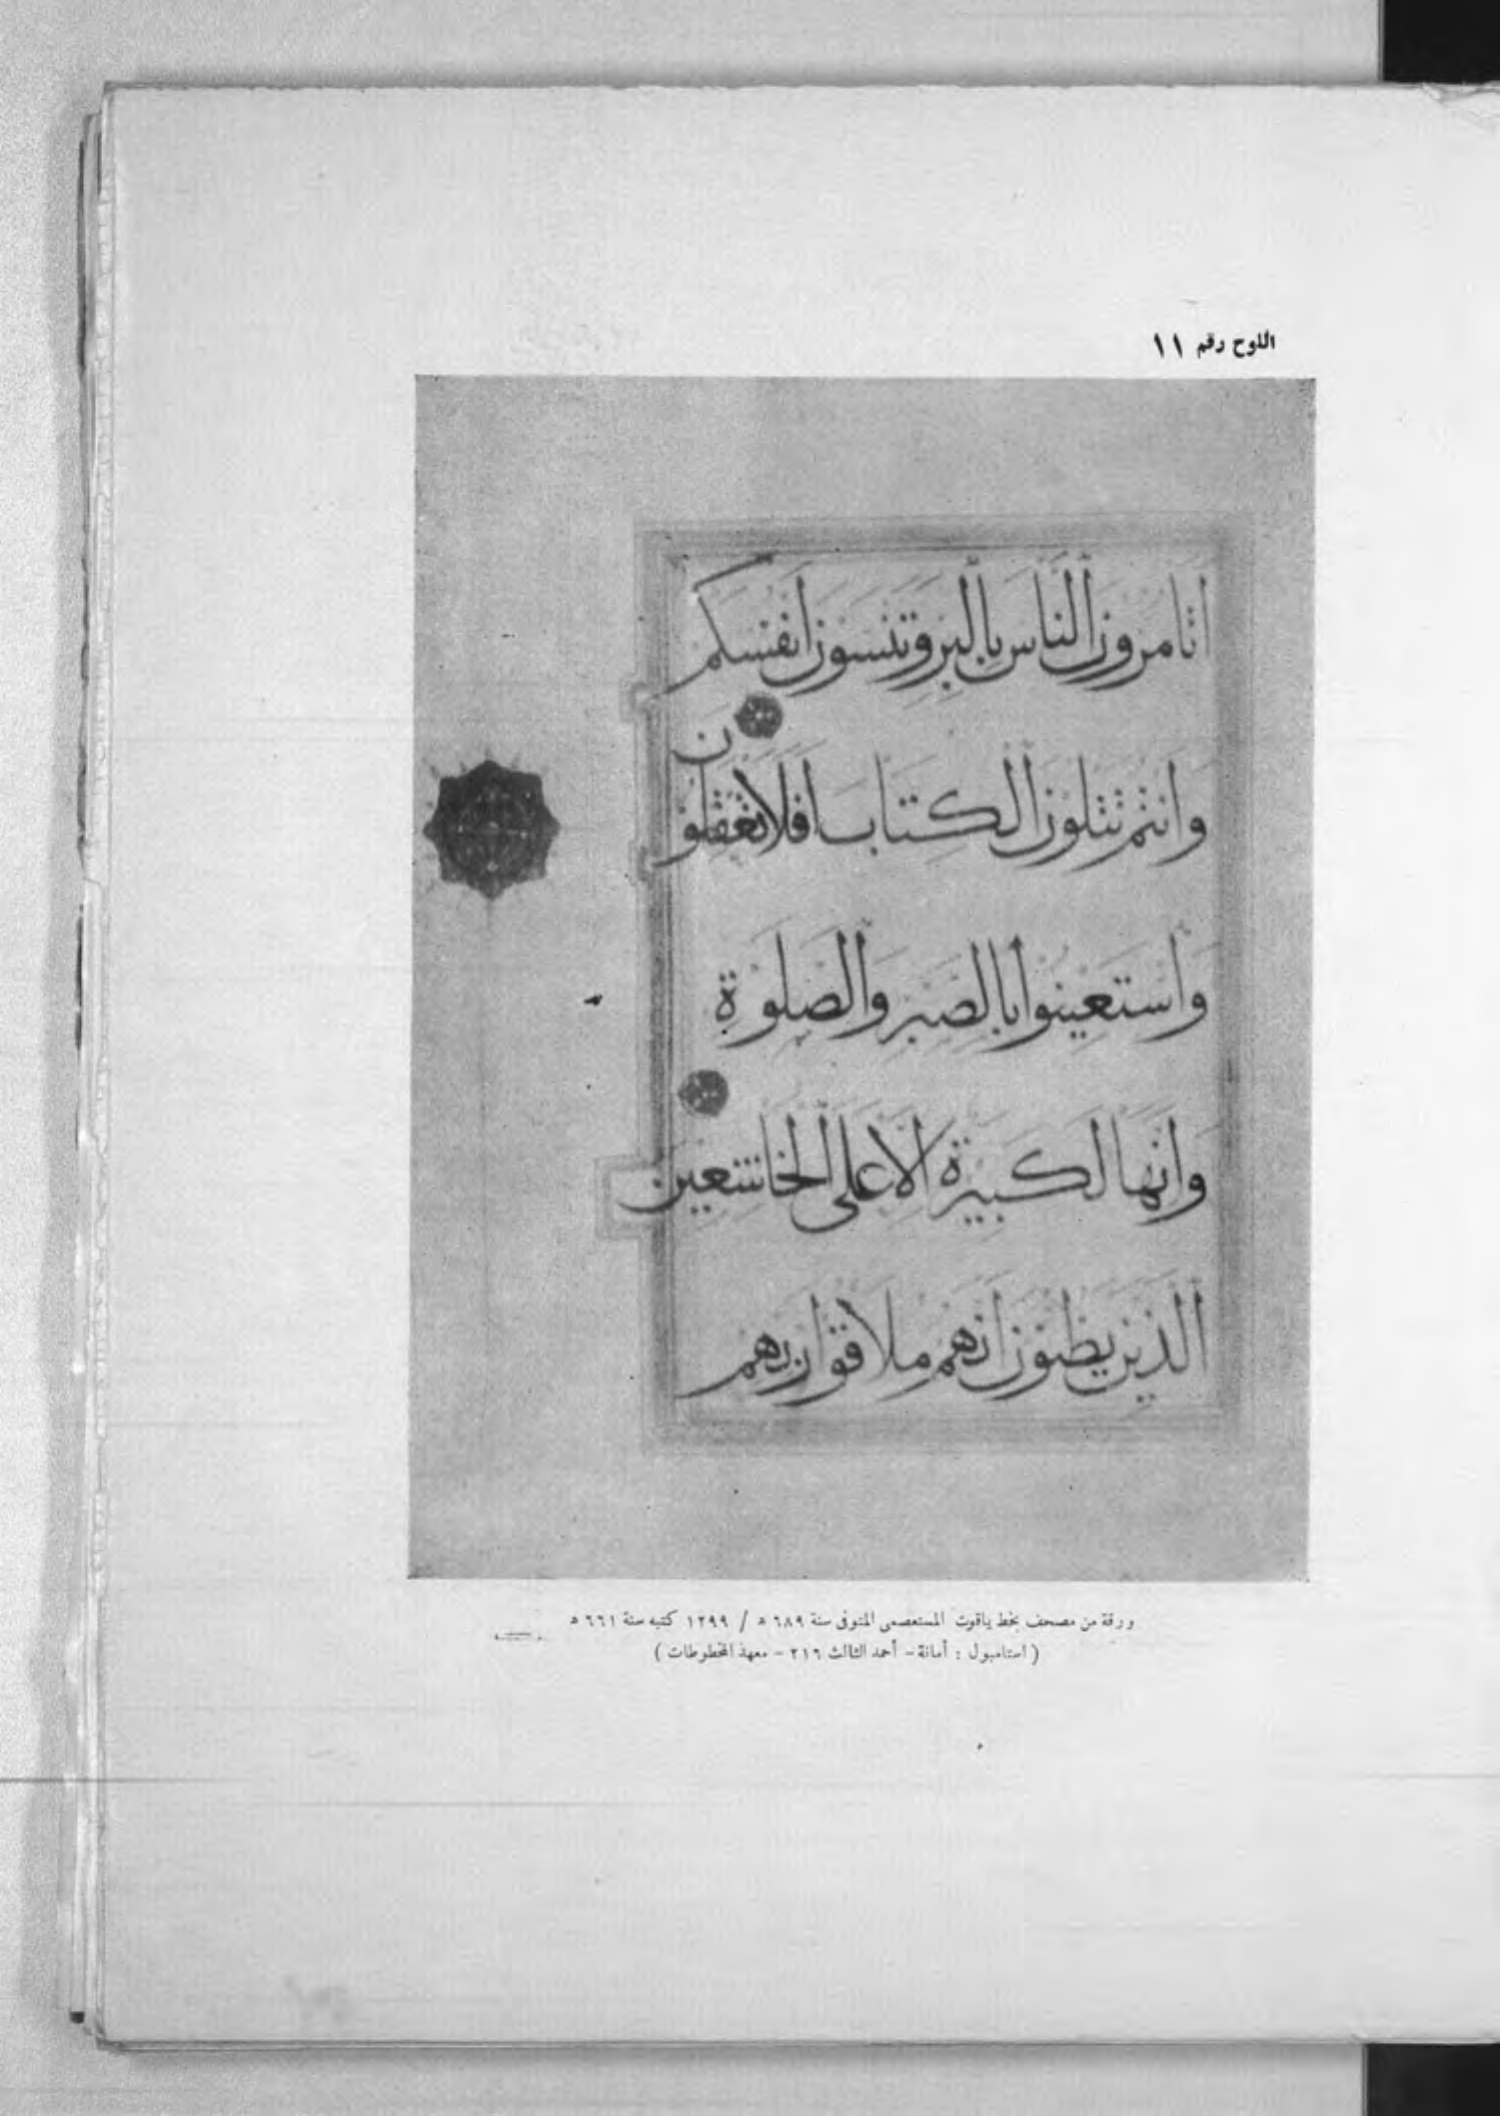 اللوح رقم ١١
اتامرون الناس بالبر وتنسون انفسكم
وانتم تتلون الكتاب افلا تعقلون
واستعينوا بالصبر والصلوة
وانها لكبيرة الا على الخاشعين
الذين يظنون انهم ملاقوا ربهم
ورقة من مصحف بخط ياقوت المستعصمى المتوفى سنة ٦٨٩ ه / ١٢٩٩ كتبه سنة ٦٦١ ه
( استامبول : أمانة - أحمد الثالث ٢١٦ - معهد المخطوطات )